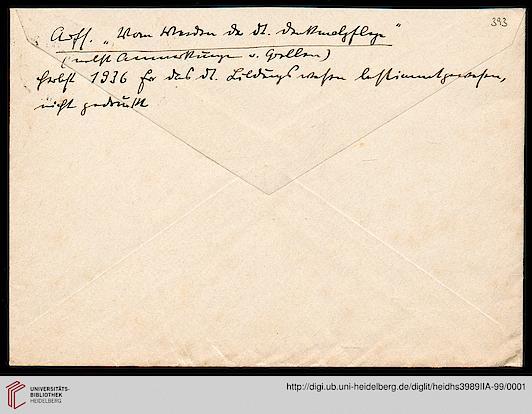 393
Aufs. „Vom Werden der dt. Denkmalpflege"
(nebst Anmerkungen u. Quellen)
Herbst 1936 für das dt. Bildungswesen bestimmt gewesen,
nicht gedruckt
UNIVERSITÄTS-
BIBLIOTHEK
HEIDELBERG
http://digi.ub.uni-heidelberg.de/diglit/heidhs3989IIA-99/0001